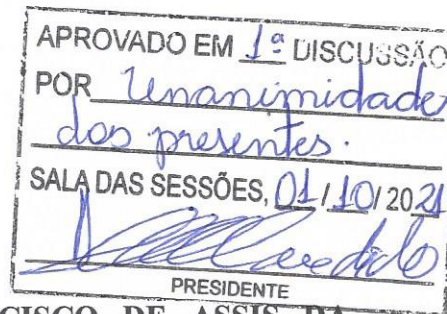 APROVADO EM 1ª DISCUSSÃO
POR Unanimidade
dos presentes.
SALA DAS SESSÕES, 01 / 10 / 2021
PRESIDENTE
CISCO DE ASSIS DA